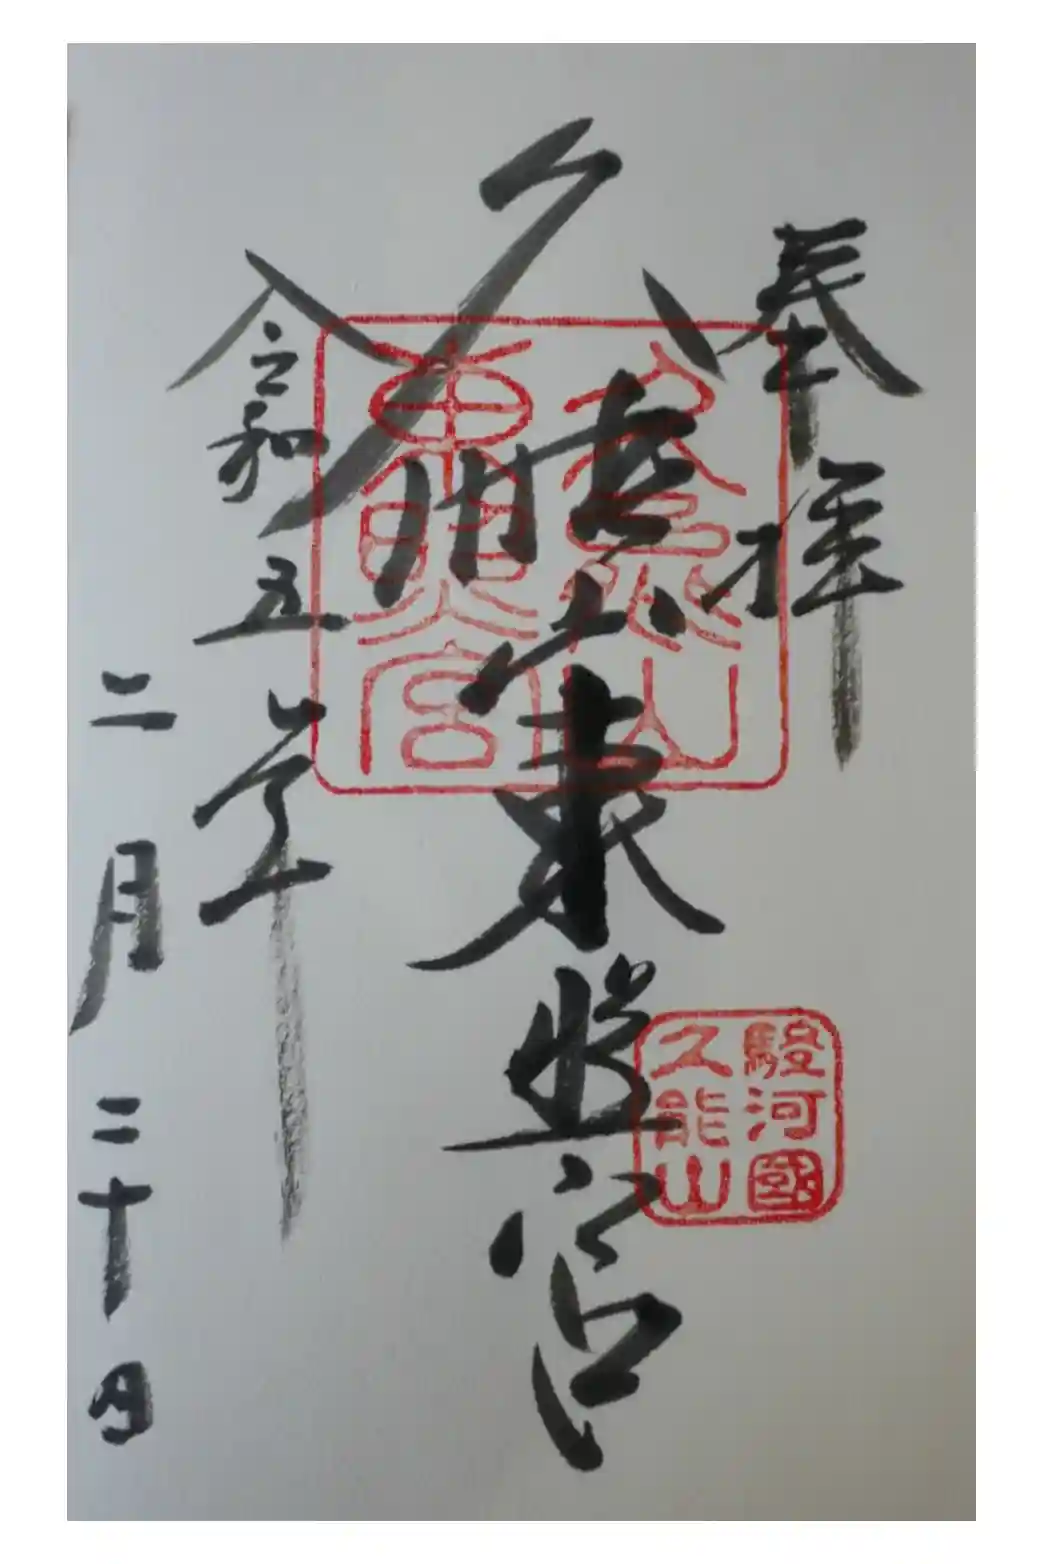 奉拝
久能山東照宮
久能山
東照宮
駿河國
久能山
令和五年
二月二十日